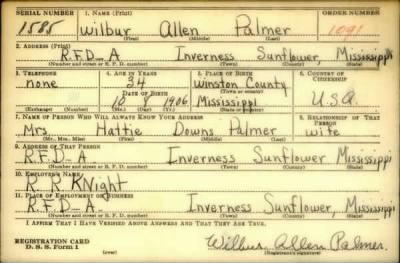 SERIAL NUMBER 1. NAME (Print) ORDER NUMBER
1585 Wilbur Allen Palmer 1091
(First) (Middle) (Last)
2. ADDRESS (Print)
R.F.D-A Inverness Sunflower, Mississippi
(Number and street or R. F. D. number) (Town) (County) (State)
3. TELEPHONE 4. AGE IN YEARS 5. PLACE OF BIRTH 6. COUNTRY OF CITIZENSHIP
none 34 Winston County
DATE OF BIRTH (Town or county)
10 8 1906 Mississippi U.S.A.
(Exchange) (Number) (Mo.) (Day) (Yr.) (State or country)
7. NAME OF PERSON WHO WILL ALWAYS KNOW YOUR ADDRESS 8. RELATIONSHIP OF THAT PERSON
Mrs. Hattie Downs Palmer wife
(Mr., Mrs., Miss) (First) (Middle) (Last)
9. ADDRESS OF THAT PERSON
R.F.D-A Inverness Sunflower, Mississippi
(Number and street or R. F. D. number) (Town) (County) (State)
10. EMPLOYER'S NAME
R. R. KNight
11. PLACE OF EMPLOYMENT OR BUSINESS
R.F.D-A Inverness Sunflower, Mississippi
(Number and street or R. F. D. number) (Town) (County) (State)
I AFFIRM THAT I HAVE VERIFIED ABOVE ANSWERS AND THAT THEY ARE TRUE.
REGISTRATION CARD
D. S. S. Form 1 (over) Wilbur Allen Palmer.
(Registrant's signature)